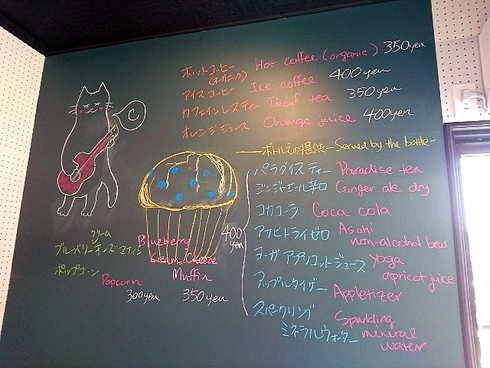 ホットコーヒー Hot coffee (organic) 350yen
(オーガニック)
アイスコーヒー Ice coffee 400yen
カフェインレスティー Decaf tea 350yen
オレンジジュース Orange juice 400yen
C
ボトルでの提供--Served by the bottle-
パラダイスティー Paradise tea
ジンジャエール辛口 Ginger ale dry
コカコーラ Coca cola
アサヒドライゼロ Asahi
non-alcohol beer
ヨーガアプリコットジュース yoga
apricot juice
アップルタイザー Appletizer
スパークリング Sparkling
ミネラルウォーター mineral
water
400
yen
クリーム
ブルーベリーチーズマフィン
Blueberry
Cream Cheese
Muffin
350yen
ポップコーン
Popcorn
300yen